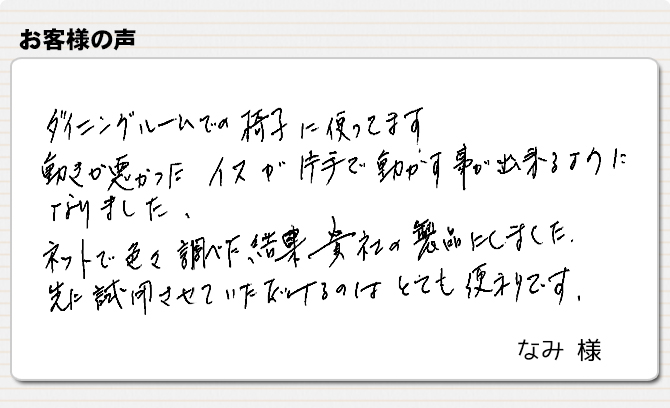 お客様の声
ダイニングルームでの椅子に使ってます
動きが悪かった イスが片手で動かす事が出来るように
なりました、
ネットで色々調べた結果貴社の製品にしました.
先に試用させていただけるのはとても便利です.
なみ 様